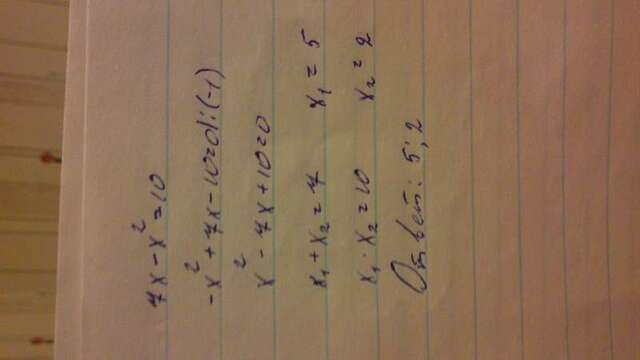 7x - x² = 10
-x² + 7x - 10 = 0 | : (-1)
x² - 7x + 10 = 0
x₁ + x₂ = 7 x₁ = 5
x₁ · x₂ = 10 x₂ = 2
Ответ: 5; 2